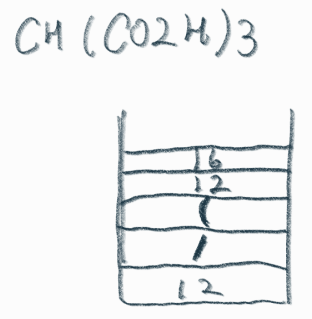 CH(CO2H)3
16
12
(
1
12